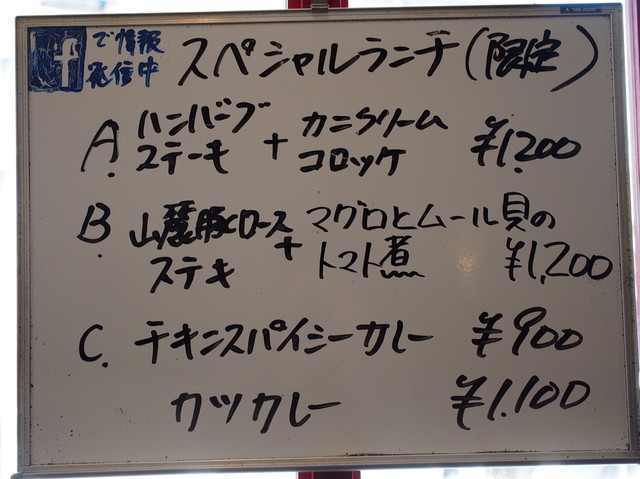 f で情報
発信中
スペシャルランチ(限定)
A. ハンバーグ + カニクリーム ¥1,200
ステーキ コロッケ
B. 山麓豚ロース + マグロとムール貝の
ステキ トマト煮 ¥1,200
C. チキンスパイシーカレー ¥900
カツカレー ¥1,100